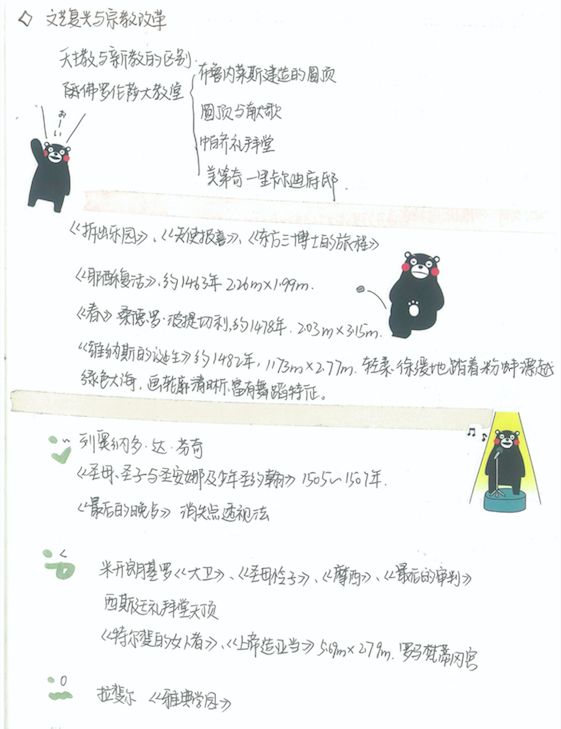 文艺复兴与宗教改革
天主教与新教的区别.
佛罗伦萨大教堂
布鲁内莱斯建造的圆顶
圆顶与颂歌
帕齐礼拜堂
美第奇-里卡尔迪府邸.
おーい
《逐出乐园》、《天使报喜》、《东方三博士的旅程》
《耶稣復活》,约1463年 2.26m×1.99m.
《春》桑德罗·波提切利,约1478年. 2.03m×3.15m.
《维纳斯的诞生》约1482年, 1.73m×2.77m. 轻柔、徐缓地踏着粉蚌漂越
绿色大海, 画轮廓清晰,富有舞蹈特征。
列奥纳多·达·芬奇
《圣母、圣子与圣安娜及少年圣约翰》1505~1507年.
《最后的晚餐》 消失点透视法
米开朗基罗《大卫》、《圣母怜子》、《摩西》、《最后的审判》
西斯廷礼拜堂天顶
《特尔斐的女人者》、《上帝造亚当》5.69m×2.79m. 罗马梵蒂冈宫
拉斐尔 《雅典学园》